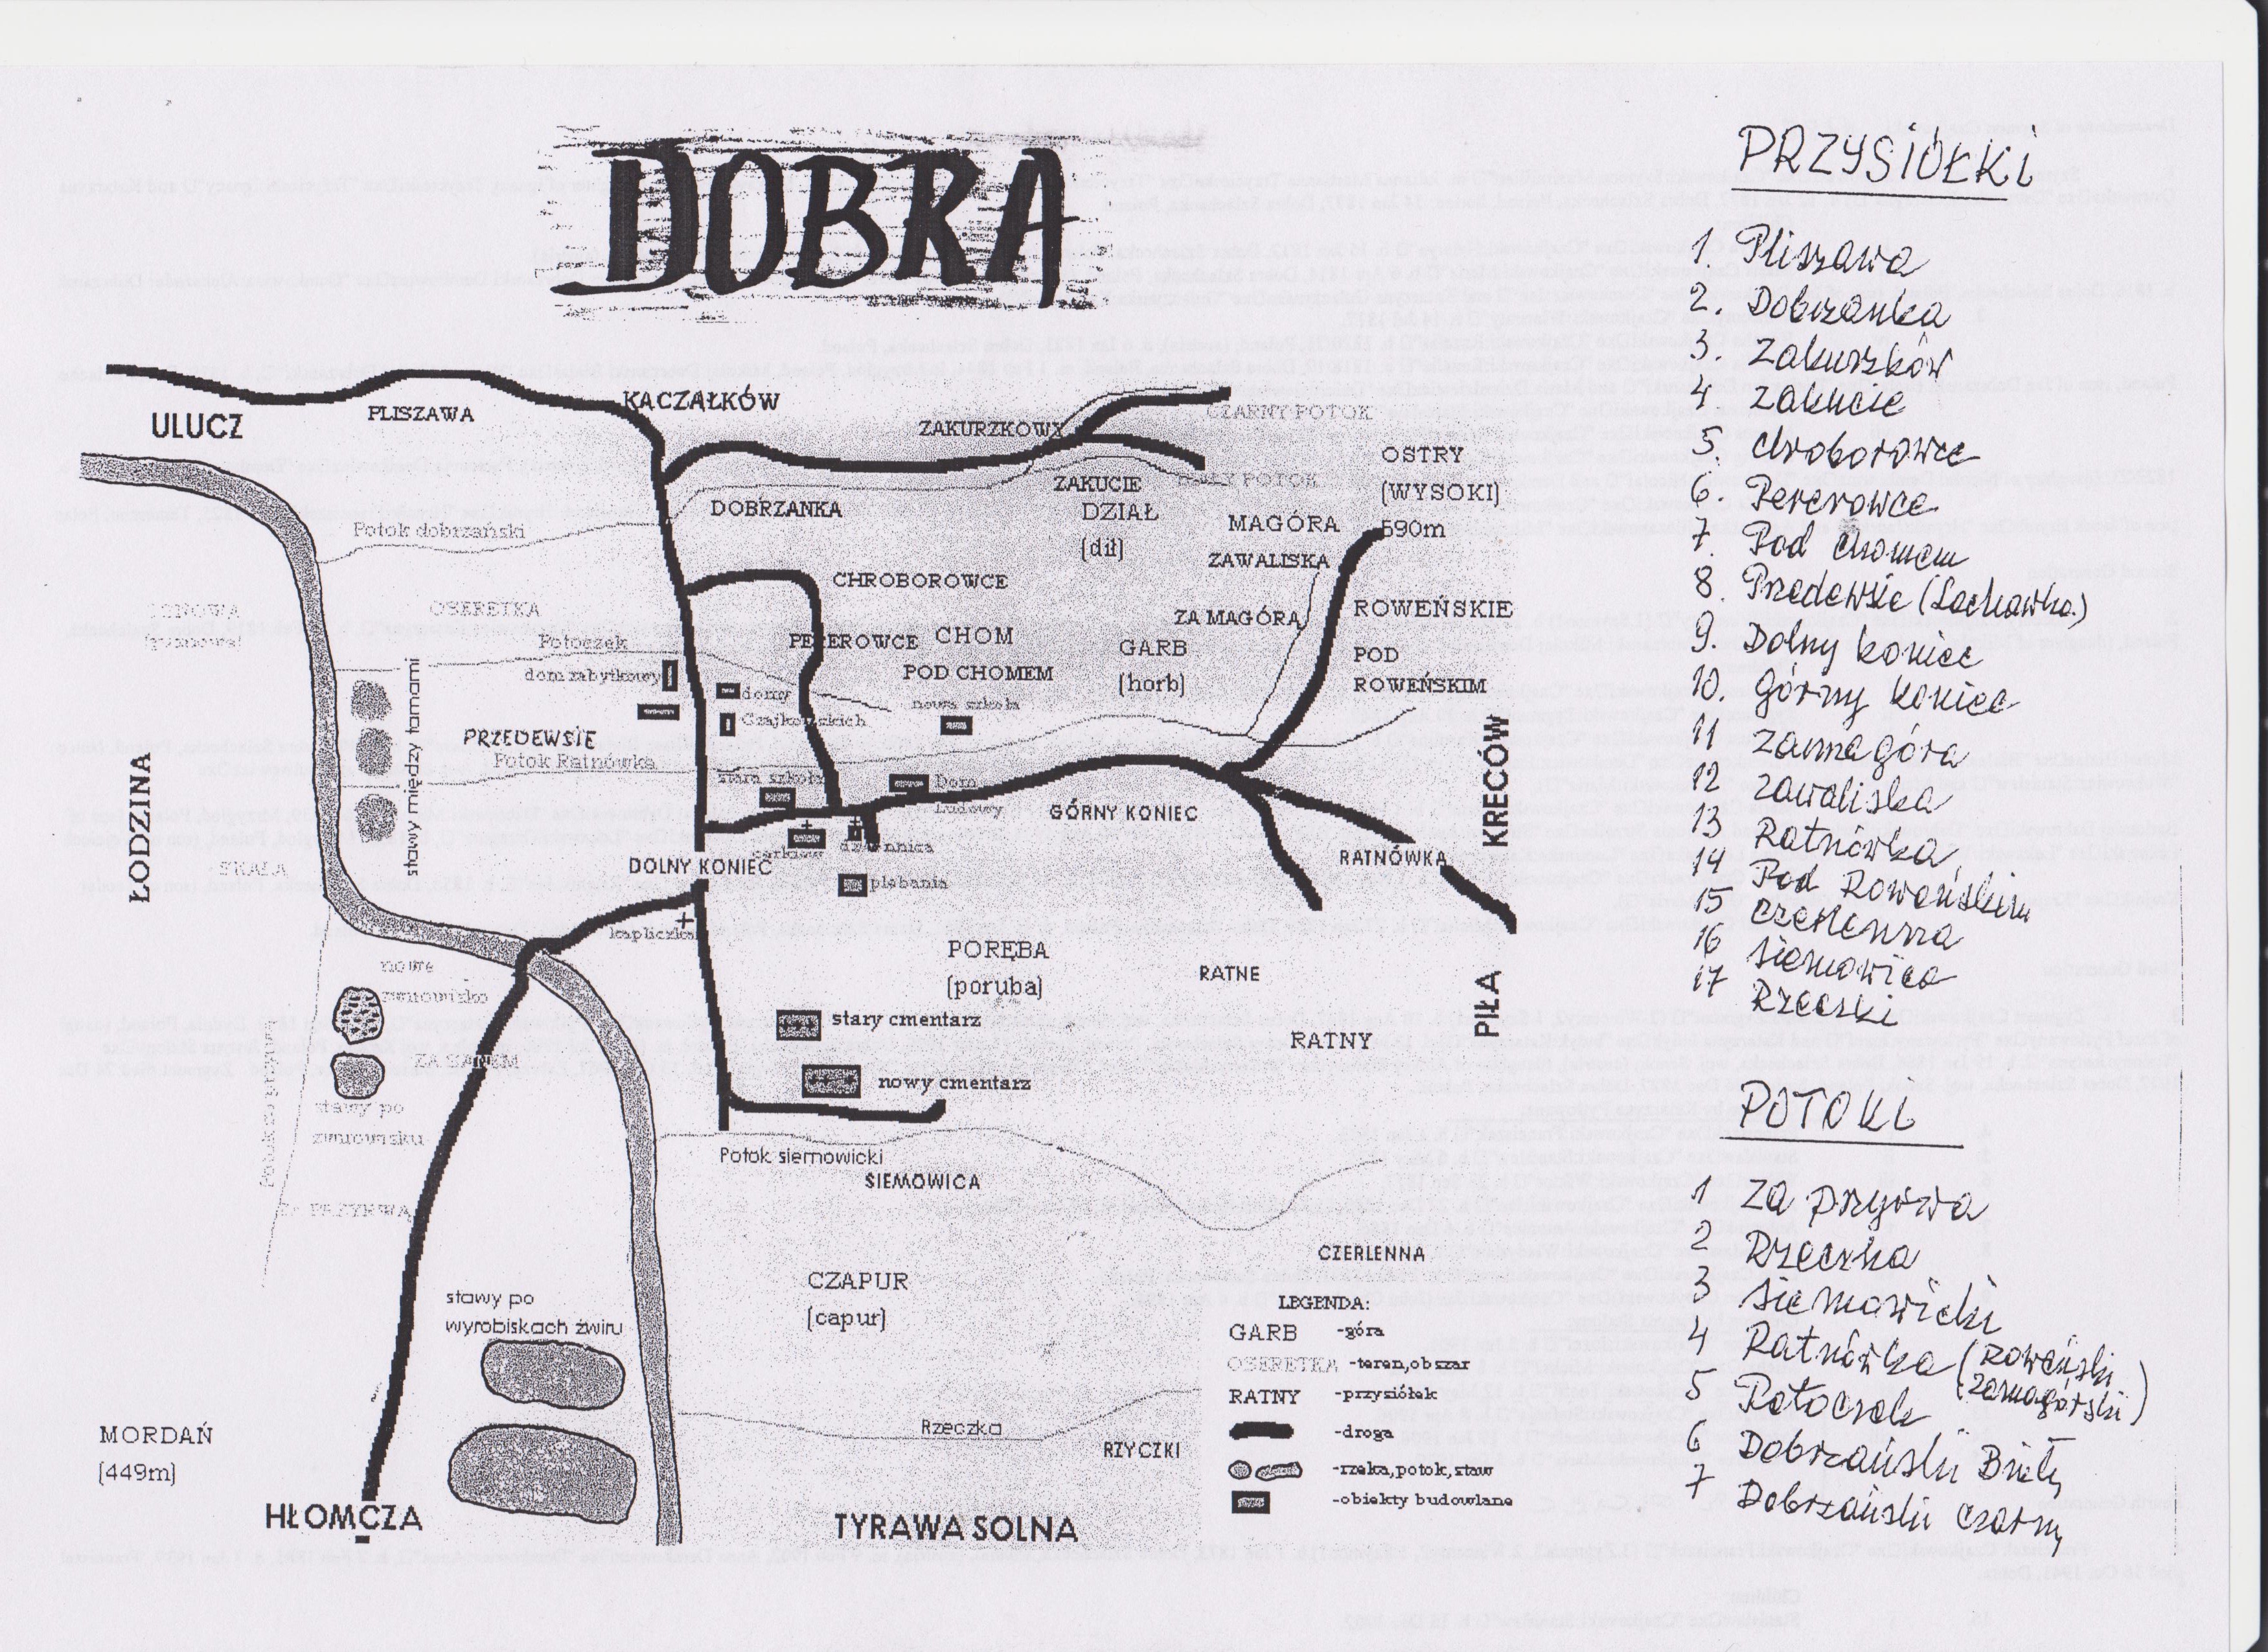 DOBRA
ULUCZ
PLISZAWA
KACZAŁKÓW
ZAKURZKOWY
CZARNY POTOK
OSTRY
(WYSOKI)
590m
ZAKUCIE
POTOK
DOBRZANKA
DZIAŁ
(dił)
MAGÓRA
Potok dobrzański
ZAWALISKA
CHROBOROWCE
OSERETKA
ZA MAGÓRĄ
ROWEŃSKIE
Potoczek
PEREROWCE
CHOM
GARB
(horb)
POD
ROWEŃSKIM
dom zabytkowy
POD CHOMEM
domy
Czajkowskich
nowa szkoła
stawy między tamami
PRZEDEWSIE
Potok Ratnówka
stara szkoła
Dom
Ludowy
GÓRNY KONIEC
KRECÓW
ŁODZINA
SKAŁA
DOLNY KONIEC
cerkiew
dzwonnica
RATNÓWKA
plebania
kapliczka
PORĘBA
(poruba)
RATNE
nowe
żwirowisko
stary cmentarz
PIŁA
RATNY
ZA SANEM
nowy cmentarz
stawy po
żwirowisku
Potok siemowicki
SIEMOWICA
Za PRZYRWĄ
CZERLENNA
CZAPUR
(capur)
stawy po
wyrobiskach żwiru
LEGENDA:
GARB -góra
OSERETKA -teren,obszar
RATNY -przysiółek
-droga
-rzeka,potok,staw
-obiekty budowlane
Rzeczka
RZYCZKI
MORDAŃ
(449m)
HŁOMCZA
TYRAWA SOLNA
PRZYSIÓŁKI
1. Pliszawa
2. Dobrzanka
3. Zakurzków
4 Zakucie
5. Chroborowce
6. Pererowce
7. Pod Chomem
8. Przedewsie (Lachawka)
9. Dolny koniec
10. Górny koniec
11 Zamagóra
12 Zawaliska
13 Ratnówka
14 Pod Roweńskim
15 Czerlenna
16 Siemowica
17 Rzeczki
POTOKI
1 Za przyrwa
2 Rzeczka
3 Siemowicki
4 Ratnówka (Roweński
Zamagórski)
5 Potoczek
6 Dobrzański Biały
7 Dobrzański Czarny